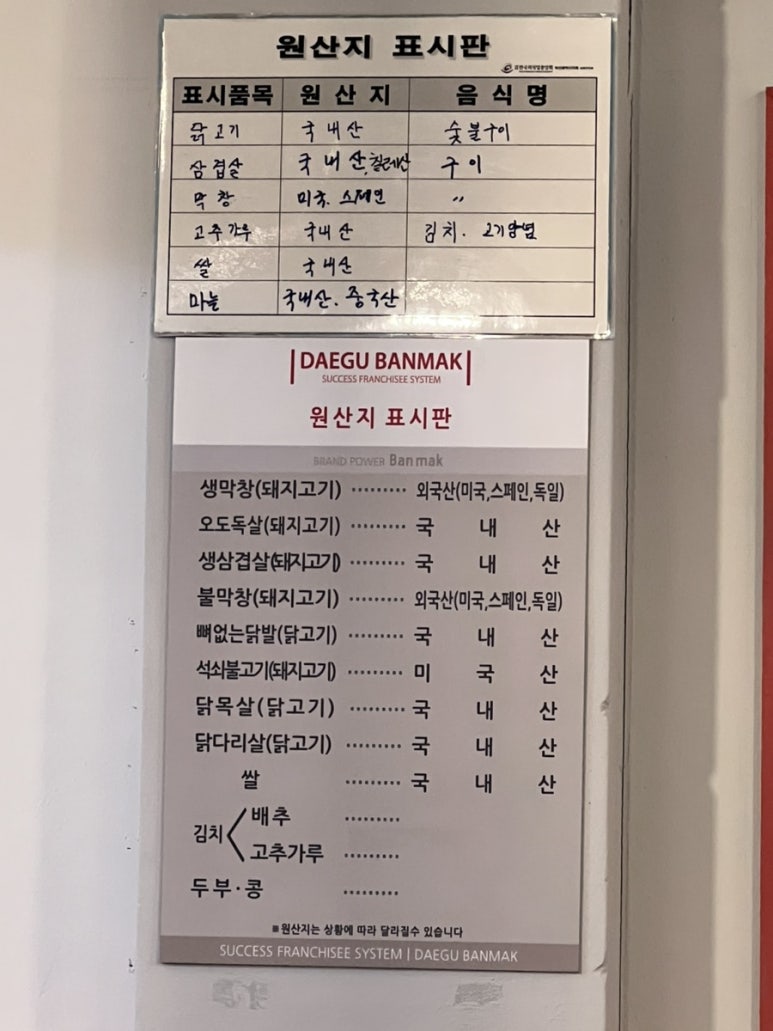 원산지 표시판
표시품목 원산지 음식명
닭고기 국내산 숯불구이
삼겹살 국내산, 칠레산 구이
막창 미국. 스페인 〃
고추가루 국내산 김치. 고기양념
쌀 국내산
마늘 국내산. 중국산
DAEGU BANMAK
SUCCESS FRANCHISEE SYSTEM
원산지 표시판
BRAND POWER Banmak
생막창(돼지고기) ········· 외국산(미국,스페인,독일)
오도독살(돼지고기) ········· 국 내 산
생삼겹살(돼지고기) ········· 국 내 산
불막창(돼지고기) ········· 외국산(미국,스페인,독일)
뼈없는닭발(닭고기) ········· 국 내 산
석쇠불고기(돼지고기) ········· 미 국 산
닭목살(닭고기) ········· 국 내 산
닭다리살(닭고기) ········· 국 내 산
쌀 ········· 국 내 산
김치 < 배추 ·········
고추가루 ·········
두부·콩 ·········
※원산지는 상황에 따라 달라질수 있습니다
SUCCESS FRANCHISEE SYSTEM | DAEGU BANMAK